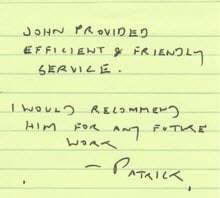 JOHN PROVIDED
EFFICIENT & FRIENDLY
SERVICE.
I WOULD RECOMMEND
HIM FOR ANY FUTURE
WORK
- PATRICK